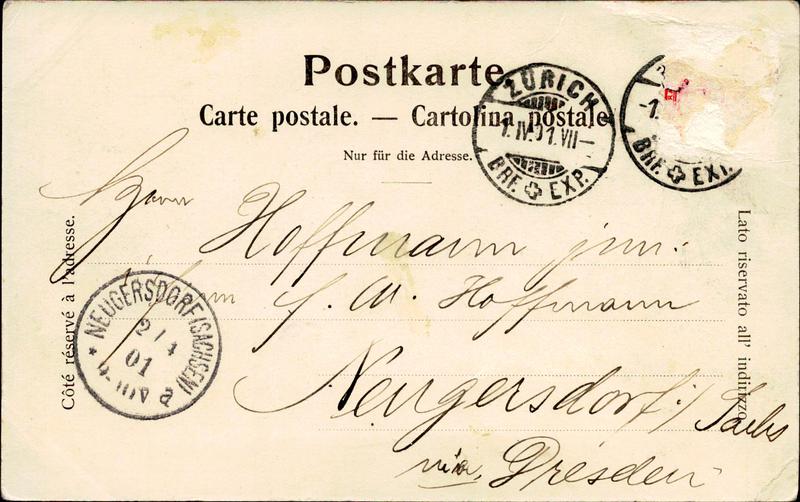 Postkarte
Carte postale. — Cartolina postale
Nur für die Adresse.
ZÜRICH
1.IV.01.VII—
BRF. EXP.
-1.
BRF. EXP.
Côté réservé à l'adresse.
Lato riservato all' indirizzo.
Herrn
Hoffmann jun.
Hoffmann
Neugersdorf i/ Sachs
via Dresden
NEUGERSDORF (SACHSEN)
2/4
01
a